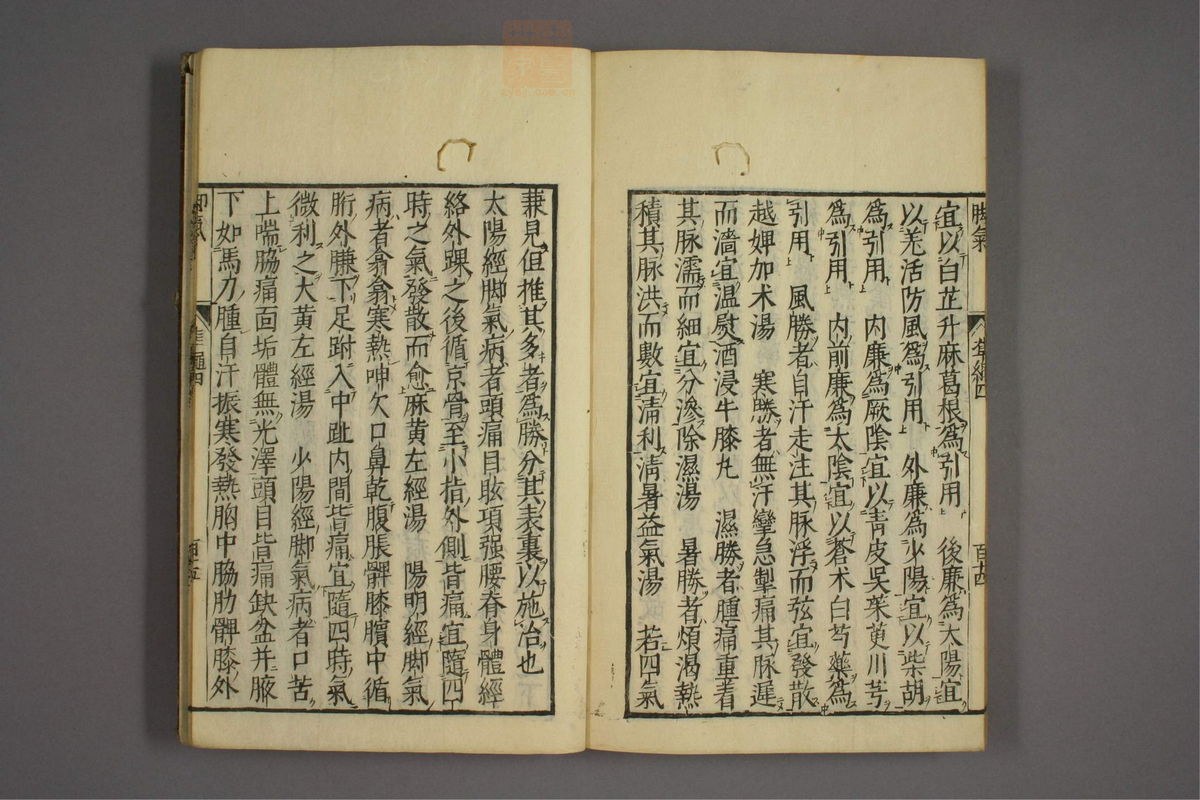 脚氣
百十四
宜以白芷升麻葛根爲引用 後廉爲太陽宜
以羌活防風爲引用 外廉爲少陽宜以柴胡
爲引用 内廉爲厥陰宜以青皮吳茱萸川芎
爲引用 内前廉爲太陰宜以蒼术白芍藥爲
引用 風勝者自汗走注其脉浮而弦宜發散
越婢加术湯 寒勝者無汗攣急掣痛其脉遲
而濇宜温熨酒浸牛膝丸 濕勝者腫痛重着
其脉濡而細宜分滲除濕湯 暑勝者煩渴熱
積其脉洪而數宜清利清暑益氣湯 若四氣
兼見但推其多者爲勝分其表裏以施治也
太陽經脚氣病者頭痛目眩項强腰脊身體經
絡外踝之後循京骨至小指外側皆痛宜隨四
時之氣發散而愈麻黄左經湯 陽明經脚氣
病者翕翕寒熱呻欠口鼻乾腹脹髀膝臏中循
胻外臁下足跗入中趾内間皆痛宜隨四時氣
微利之大黄左經湯 少陽經脚氣病者口苦
上喘脇痛面垢體無光澤頭目皆痛缺盆并腋
下如馬刀腫自汗振寒發熱胸中脇肋髀膝外